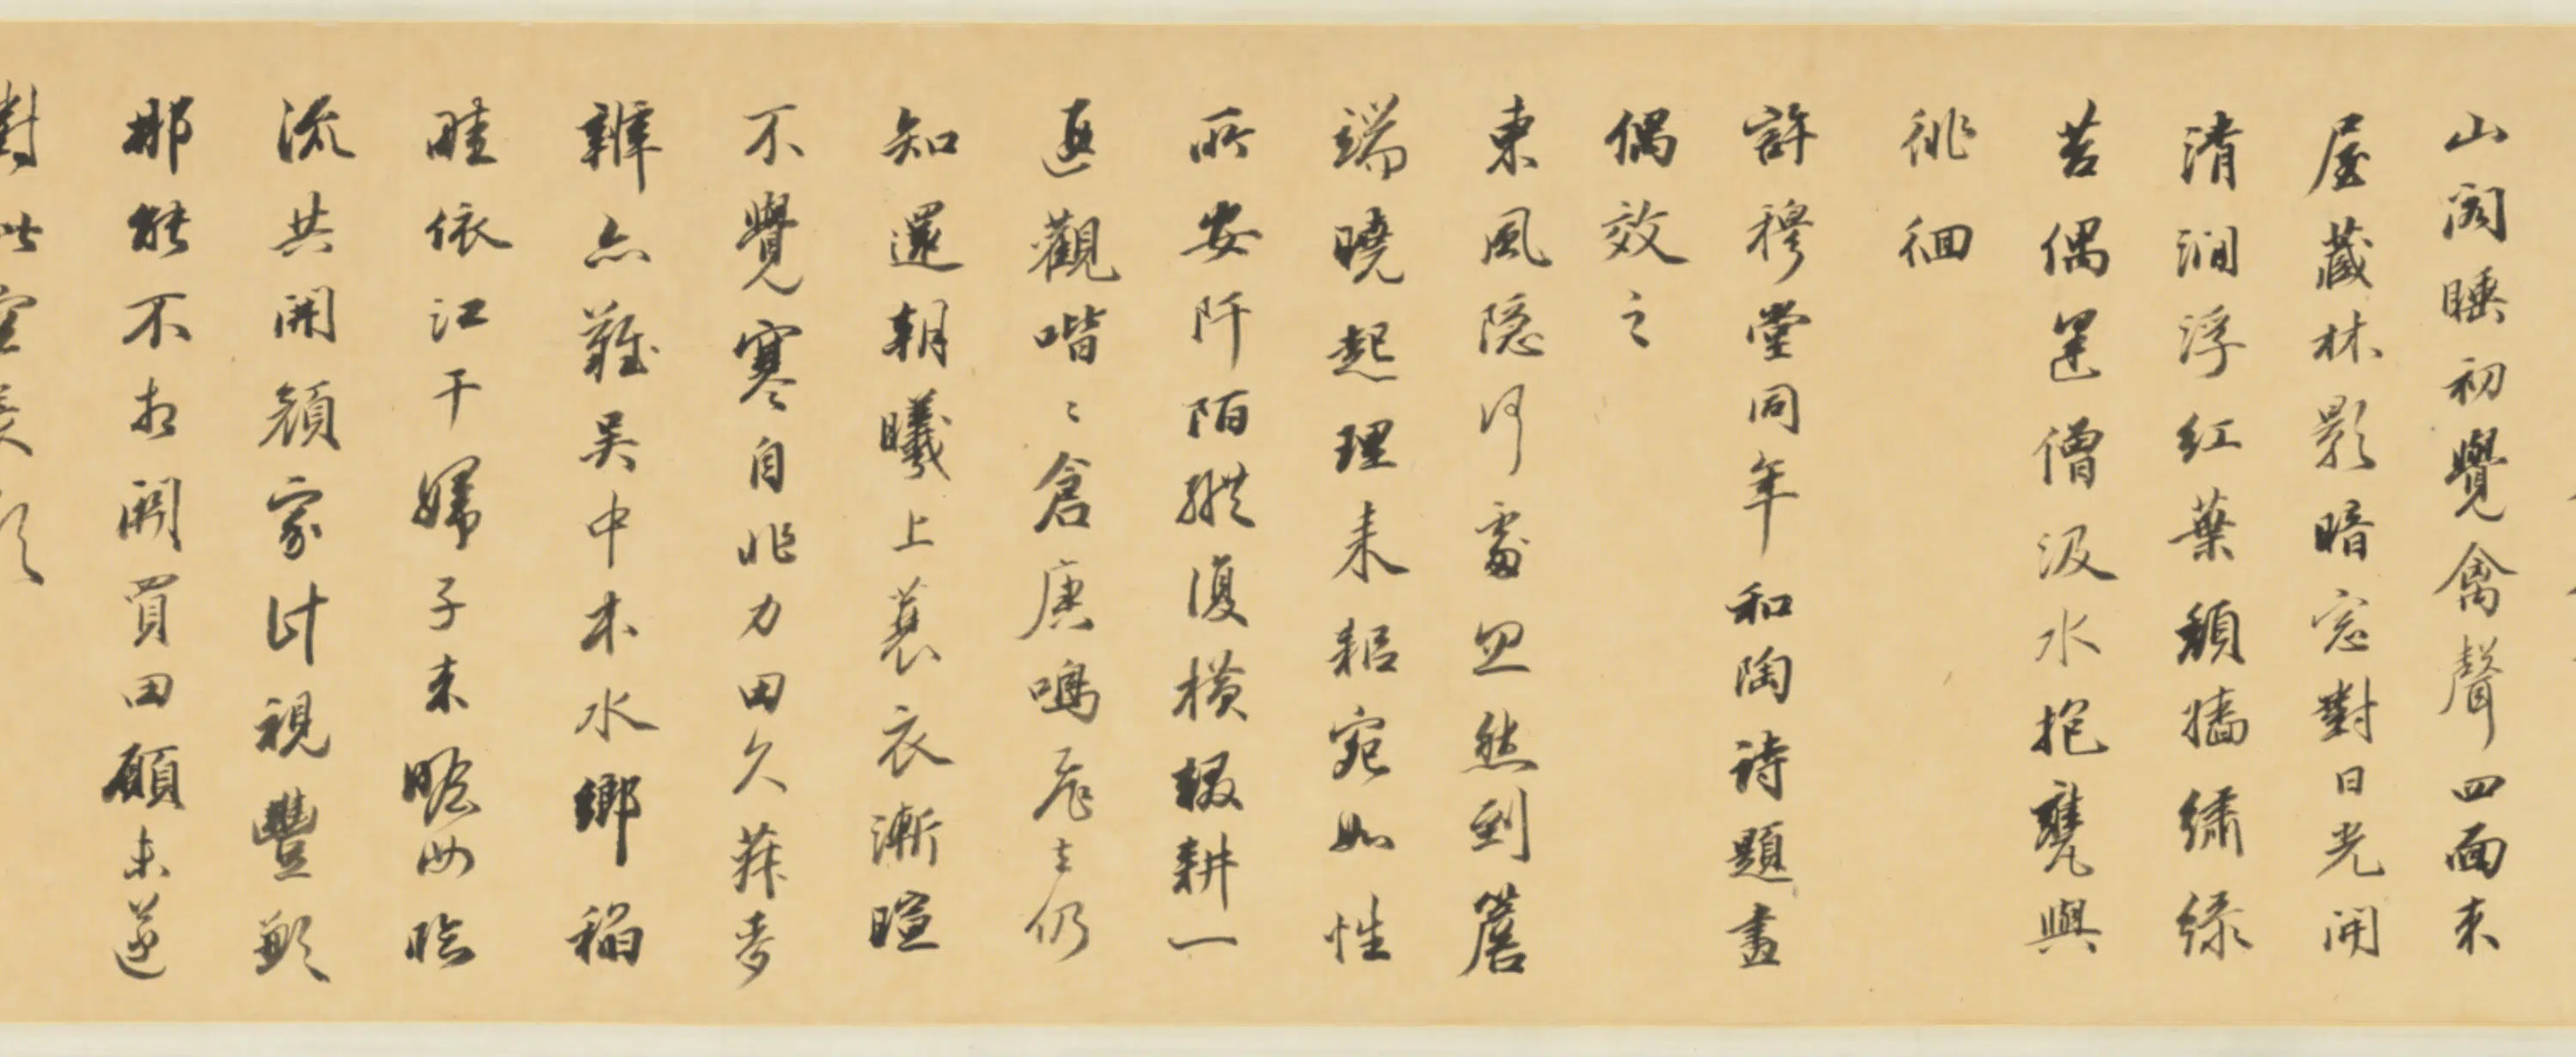 山閣睡初覺禽聲四面来
屋藏林影暗窓對日光開
清澗浮紅葉頹墻繡綠
苔偶逢僧汲水抱甕與
徘徊
許穆堂同年和陶詩題畫
偶效之
東風隱何處忽然到簷
端曉起理耒耜宛如性
所安阡陌縱復橫輟耕一
遐觀喈〻倉庚鳴飛去仍
知還朝曦上蓑衣漸暄
不覺寒自非力田久菽麥
辨亦難吳中本水鄉稻
畦依江干婦子来瞻由臨
流共開顏家計視豐歉
那能不相關買田願未遂
對此空長歎